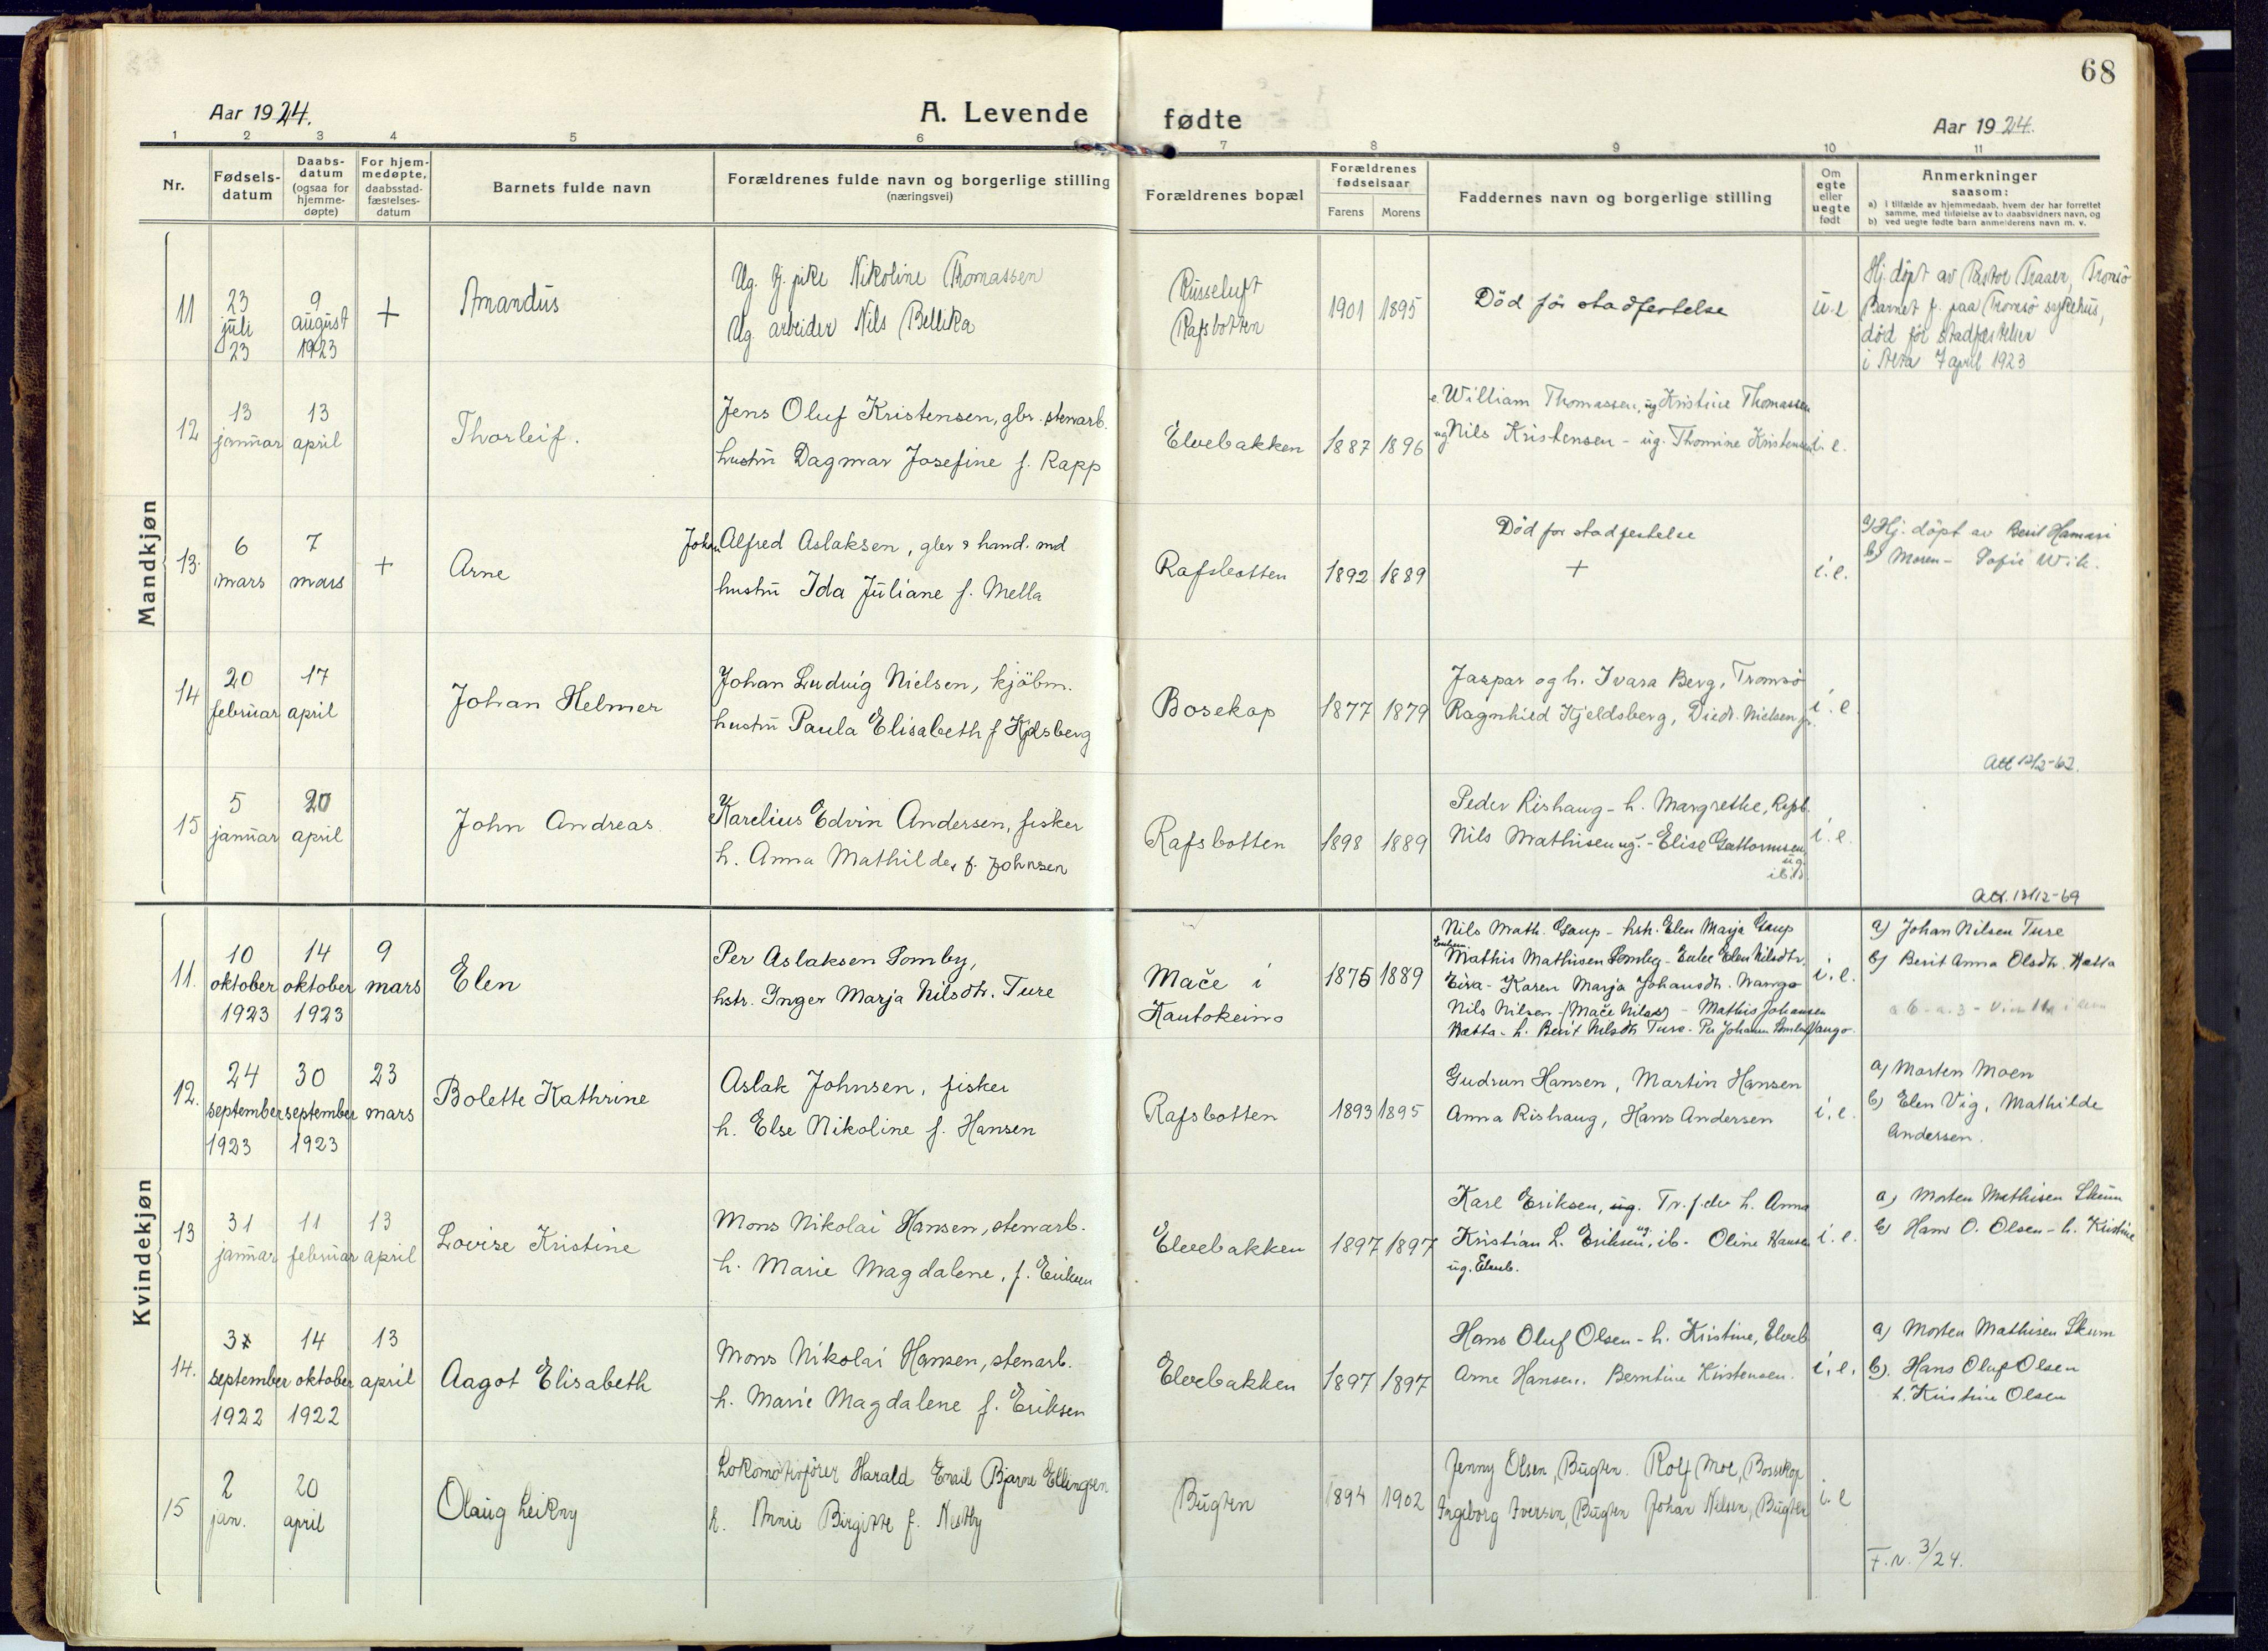 68
Aar 1924.
A. Levende fødte
Aar 1924.
1 2 3 4 5 6 7 8 9 10 11
Nr.
Fødsels-
datum
Daabs-
datum
(ogsaa for
hjemme-
døpte)
For hjem-
medøpte,
daabsstad-
fæstelses-
datum
Barnets fulde navn
Forældrenes fulde navn og borgerlige stilling
(næringsvei)
Forældrenes bopæl
Forældrenes
fødselsaar
Farens Morens
Faddernes navn og borgerlige stilling
Om
egte
eller
uegte
født
Anmerkninger
saasom:
a) i tilfælde av hjemmedaab, hvem der har forrettet
samme, med tilføielse av to daabsvidners navn, og
b) ved uegte fødte barn anmelderens navn m. v.
Mandkjøn
11
23
juli
23
9
august
1923
+
Amandus
Ug. tj. pike Nikoline Thomassen
Ug. arbeider Nils Bellika
Russeluft
Rafsbotten
1901 1895
Död för stadfestelse
u.e
Hj. döpt av Pastor Traaen, Tromsö
Barnet f. paa Tromsö sykehus,
död för stadfæstelse
i Alta 7 april 1923
12
13
januar
13
april
Thorleif.
Jens Oluf Kristensen, gbr. stenarb.
hustru Dagmar Josefine f. Rapp
Elvebakken
1887 1896
e. William Thomassen, ug Kristine Thomassen
ug Nils Kristensen - ug. Thomine Kristensen
i. e.
13.
6
mars
7
mars
+
Arne
Johan Alfred Aslaksen, gbr & hand. md
hustru Ida Juliane f. Mella
Rafsbotten
1892 1889
Död for stadfestelse
+
i. e.
a) Hj. döpt av Berit Hamari
b) Moren - Sofie Wik.
14
20
februar
17
april
Johan Helmer
Johan Ludvig Nielsen, kjöbm.
hustru Paula Elisabeth f
Bosekop
1877 1879
Jaspar og h. Ivara Berg, Tromsö
Ragnhild Kjeldsberg, Diedr. Nielsen jr.
i. e.
Att 12/2-62.
15
5
januar
20
april
John Andreas
Karelius Edvin Andersen, fisker
h. Anna Mathilde, f. Johnsen
Rafsbotten
1898 1889
Peder Rishaug - h. Margrethe, Rafsb.
Nils Mathisen ug. - Elise
ug.
ibid.
i. e.
Att. 13/12-69
Kvindekjøn
11.
10
oktober
1923
14
oktober
1923
9
mars
Elen
Per Aslaksen Somby,
hstr. Inger Marja Nilsdtr. Ture
Mače i
Kautokeino
1875 1889
Nils Math. Gaup - hsh. Elen Marja Gaup
Mathis Mathisen Somby - Enke Elen Nilsdtr.
Eira - Karen Marja Johansdtr.
Nils Nilsen (Mače Nilas) - Mathis Johansen
Hætta - h. Berit Nilsdtr Ture - Per Johansen
i. e.
a) Johan Nilsen Ture
b) Berit Anna Olsdtr. Hætta
12.
24
september
1923
30
september
1923
23
mars
Bolette Kathrine
Aslak Johnsen, fisker
h. Else Nikoline f. Hansen
Rafsbotten
1893 1895
Gudrun Hansen, Martin Hansen
Anna Rishaug, Hans Andersen
i. e.
a) Morten Moen
b) Elen Vig, Mathilde
Andersen.
13
31
januar
11
februar
13
april
Lovise Kristine
Mons Nikolai Hansen, stenarb.
h. Marie Magdalene, f. Eriksen
Elvebakken
1897 1897
Karl Eriksen, ug. Tr.f.elv h. Anna
Kristian L. Eriksen, ug. ib. Oline Hansen
ug. Elveb.
i. e.
a) Morten Mathisen Skum
b) Hans O. Olsen - h. Kristine
14.
3
september
1922
14
oktober
1922
13
april
Aagot Elisabeth
Mons Nikolai Hansen, stenarb.
h. Marie Magdalene f. Eriksen
Elvebakken
1897 1897
Hans Oluf Olsen - h. Kristine, Elveb
Arne Hansen. Berntine Kristensen.
i. e.
a) Morten Mathisen Skum
b). Hans Oluf Olsen
h. Kristine Olsen
15
2
jan.
20
april
Olaug Leikny
Lokomotivförer Harald Emil Bjarne Ellingsen
h. Annie Birgitte f. Nestby
Bugten
1894 1902
Jenny Olsen, Bugten. Rolf Moe, Bossekop
Ingeborg Iversen, Bugten Johan Nilsen, Bugten
i. e
F. N. 3/24.